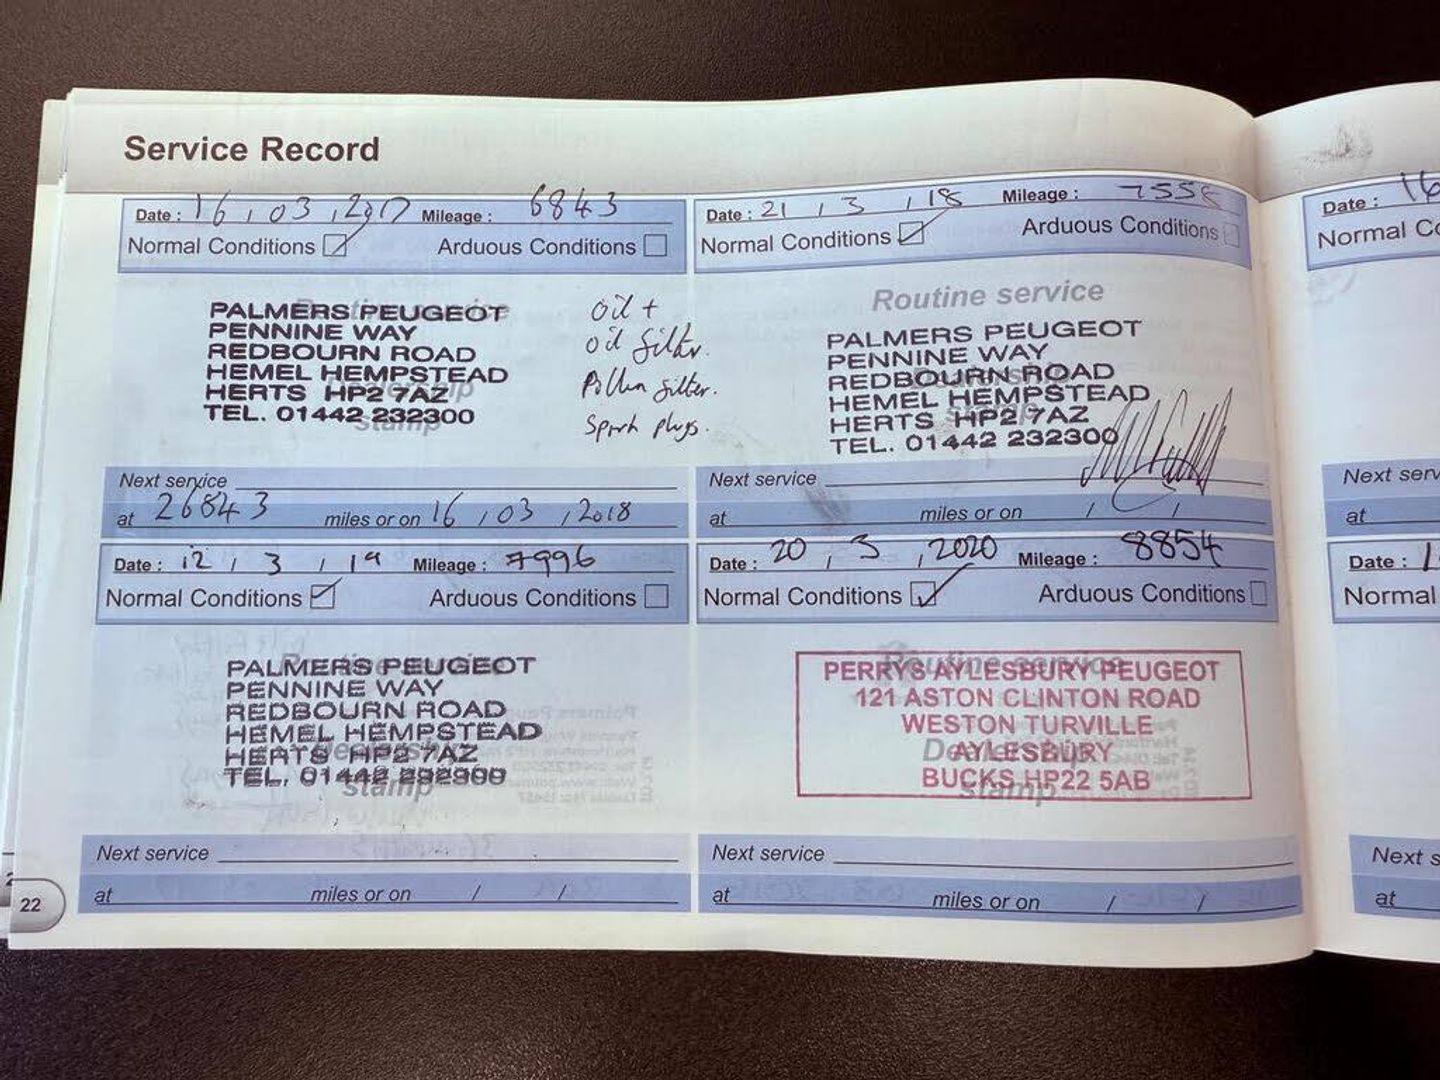 Service Record
Date : 16 / 03 / 2017 Mileage : 6843
Normal Conditions Arduous Conditions
Routine service
PALMERS PEUGEOT
PENNINE WAY
REDBOURN ROAD
HEMEL HEMPSTEAD
HERTS HP2 7AZ
TEL. 01442 232300
Dealership
stamp
oil +
oil filter.
Pollen filter.
Spark plugs.
Next service
at 26843 miles or on 16 / 03 / 2018
Date : 21 / 3 / 18 Mileage : 7558
Normal Conditions Arduous Conditions
Routine service
PALMERS PEUGEOT
PENNINE WAY
REDBOURN ROAD
HEMEL HEMPSTEAD
HERTS HP2 7AZ
TEL. 01442 232300
Dealership
stamp
Next service
at miles or on / /
Date : 12 / 3 / 19 Mileage : 7996
Normal Conditions Arduous Conditions
Routine service
PALMERS PEUGEOT
PENNINE WAY
REDBOURN ROAD
HEMEL HEMPSTEAD
HERTS HP2 7AZ
TEL. 01442 232300
Dealership
stamp
Next service
at miles or on / /
Date : 20 / 3 / 2020 Mileage : 8854
Normal Conditions Arduous Conditions
Routine service
PERRYS AYLESBURY PEUGEOT
121 ASTON CLINTON ROAD
WESTON TURVILLE
AYLESBURY
BUCKS HP22 5AB
Dealership
stamp
Next service
at miles or on / /
22
Date : 16
Normal Co
Next serv
at
Date : 1
Normal
Next s
at